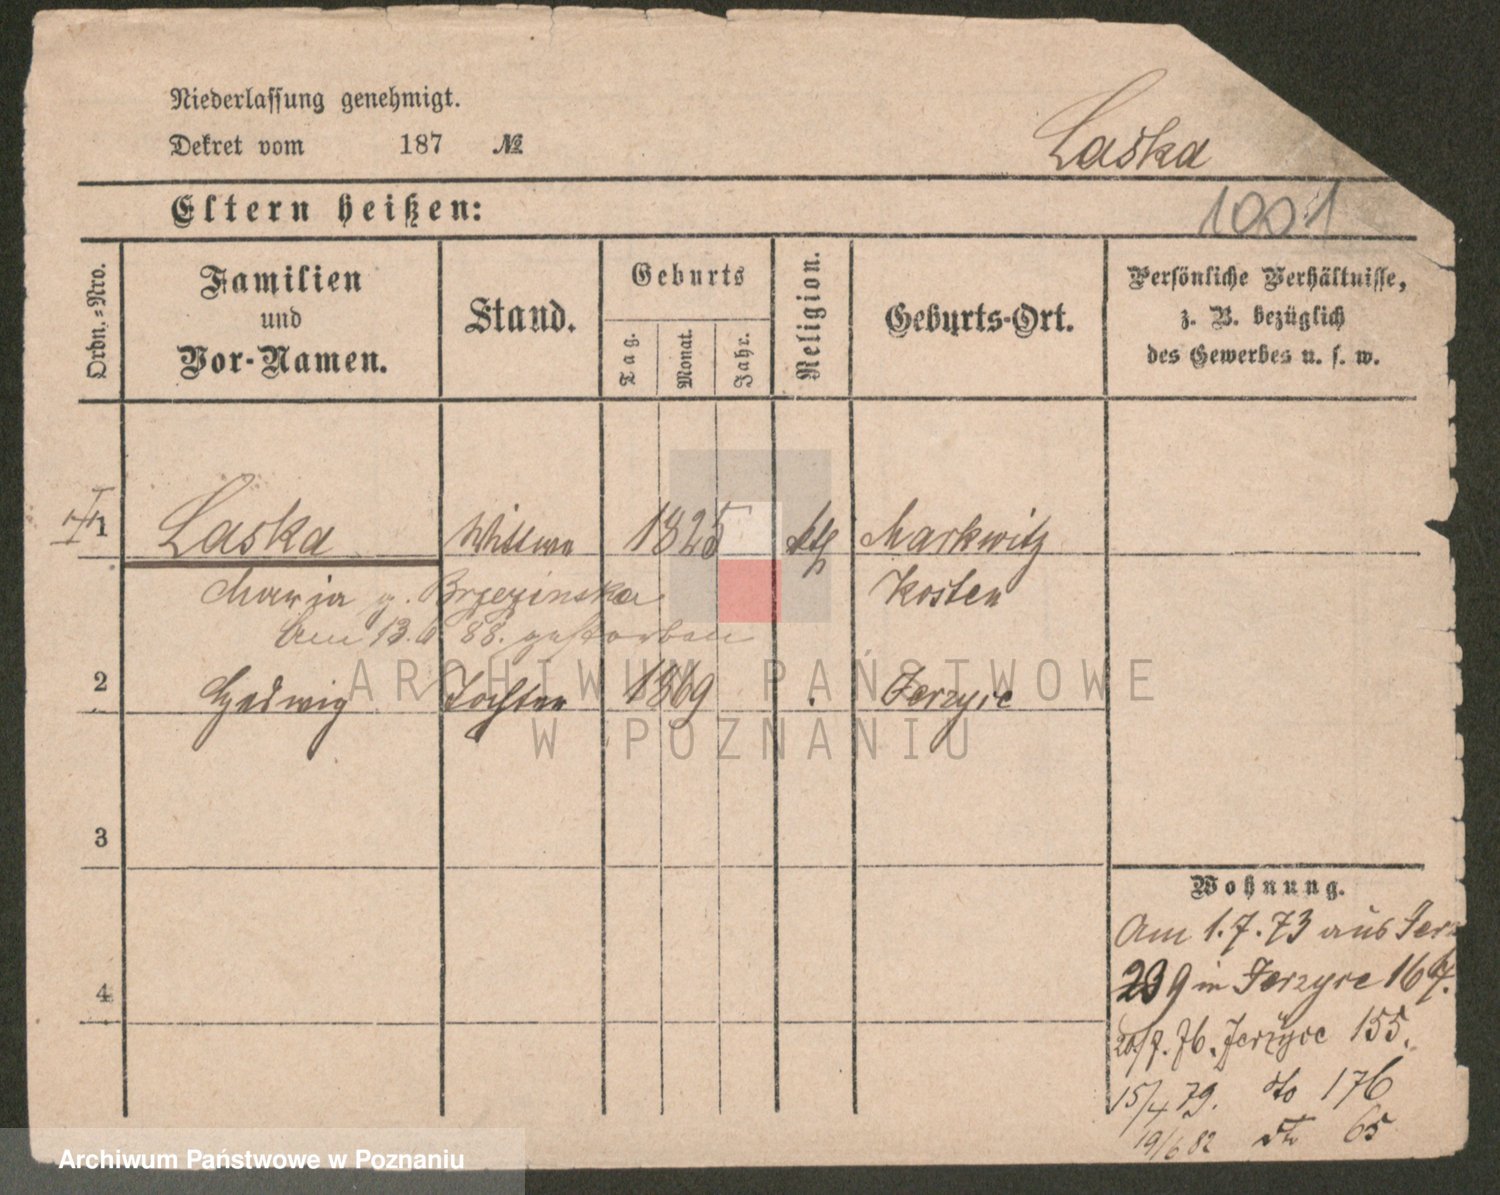 Niederlassung genehmigt.
Dekret vom 187 №
Laska
Eltern heißen:
1001
Ordn.-Nro.
Familien
und
Vor-Namen.
Stand.
Geburts
Tag.
Monat.
Jahr.
Religion.
Geburts-Ort.
Persönliche Verhältnisse,
z. B. bezüglich
des Gewerbes u. s. w.
1 Laska Wittwe 1825 kth Markwitz
Maria g. Brzezinska Kosten
Am 13.6 88. gestorben
2 Hedwig Tochter 1869 Jerzyce
3
4
Wohnung.
Am 1.7.73 aus Jerz
239 in Jerzyce 167.
20/7.76. Jerzyce 155.
15/4 79. dto 176
19/6 82 dto 65
ARCHIWUM PAŃSTWOWE
W POZNANIU
Archiwum Państwowe w Poznaniu